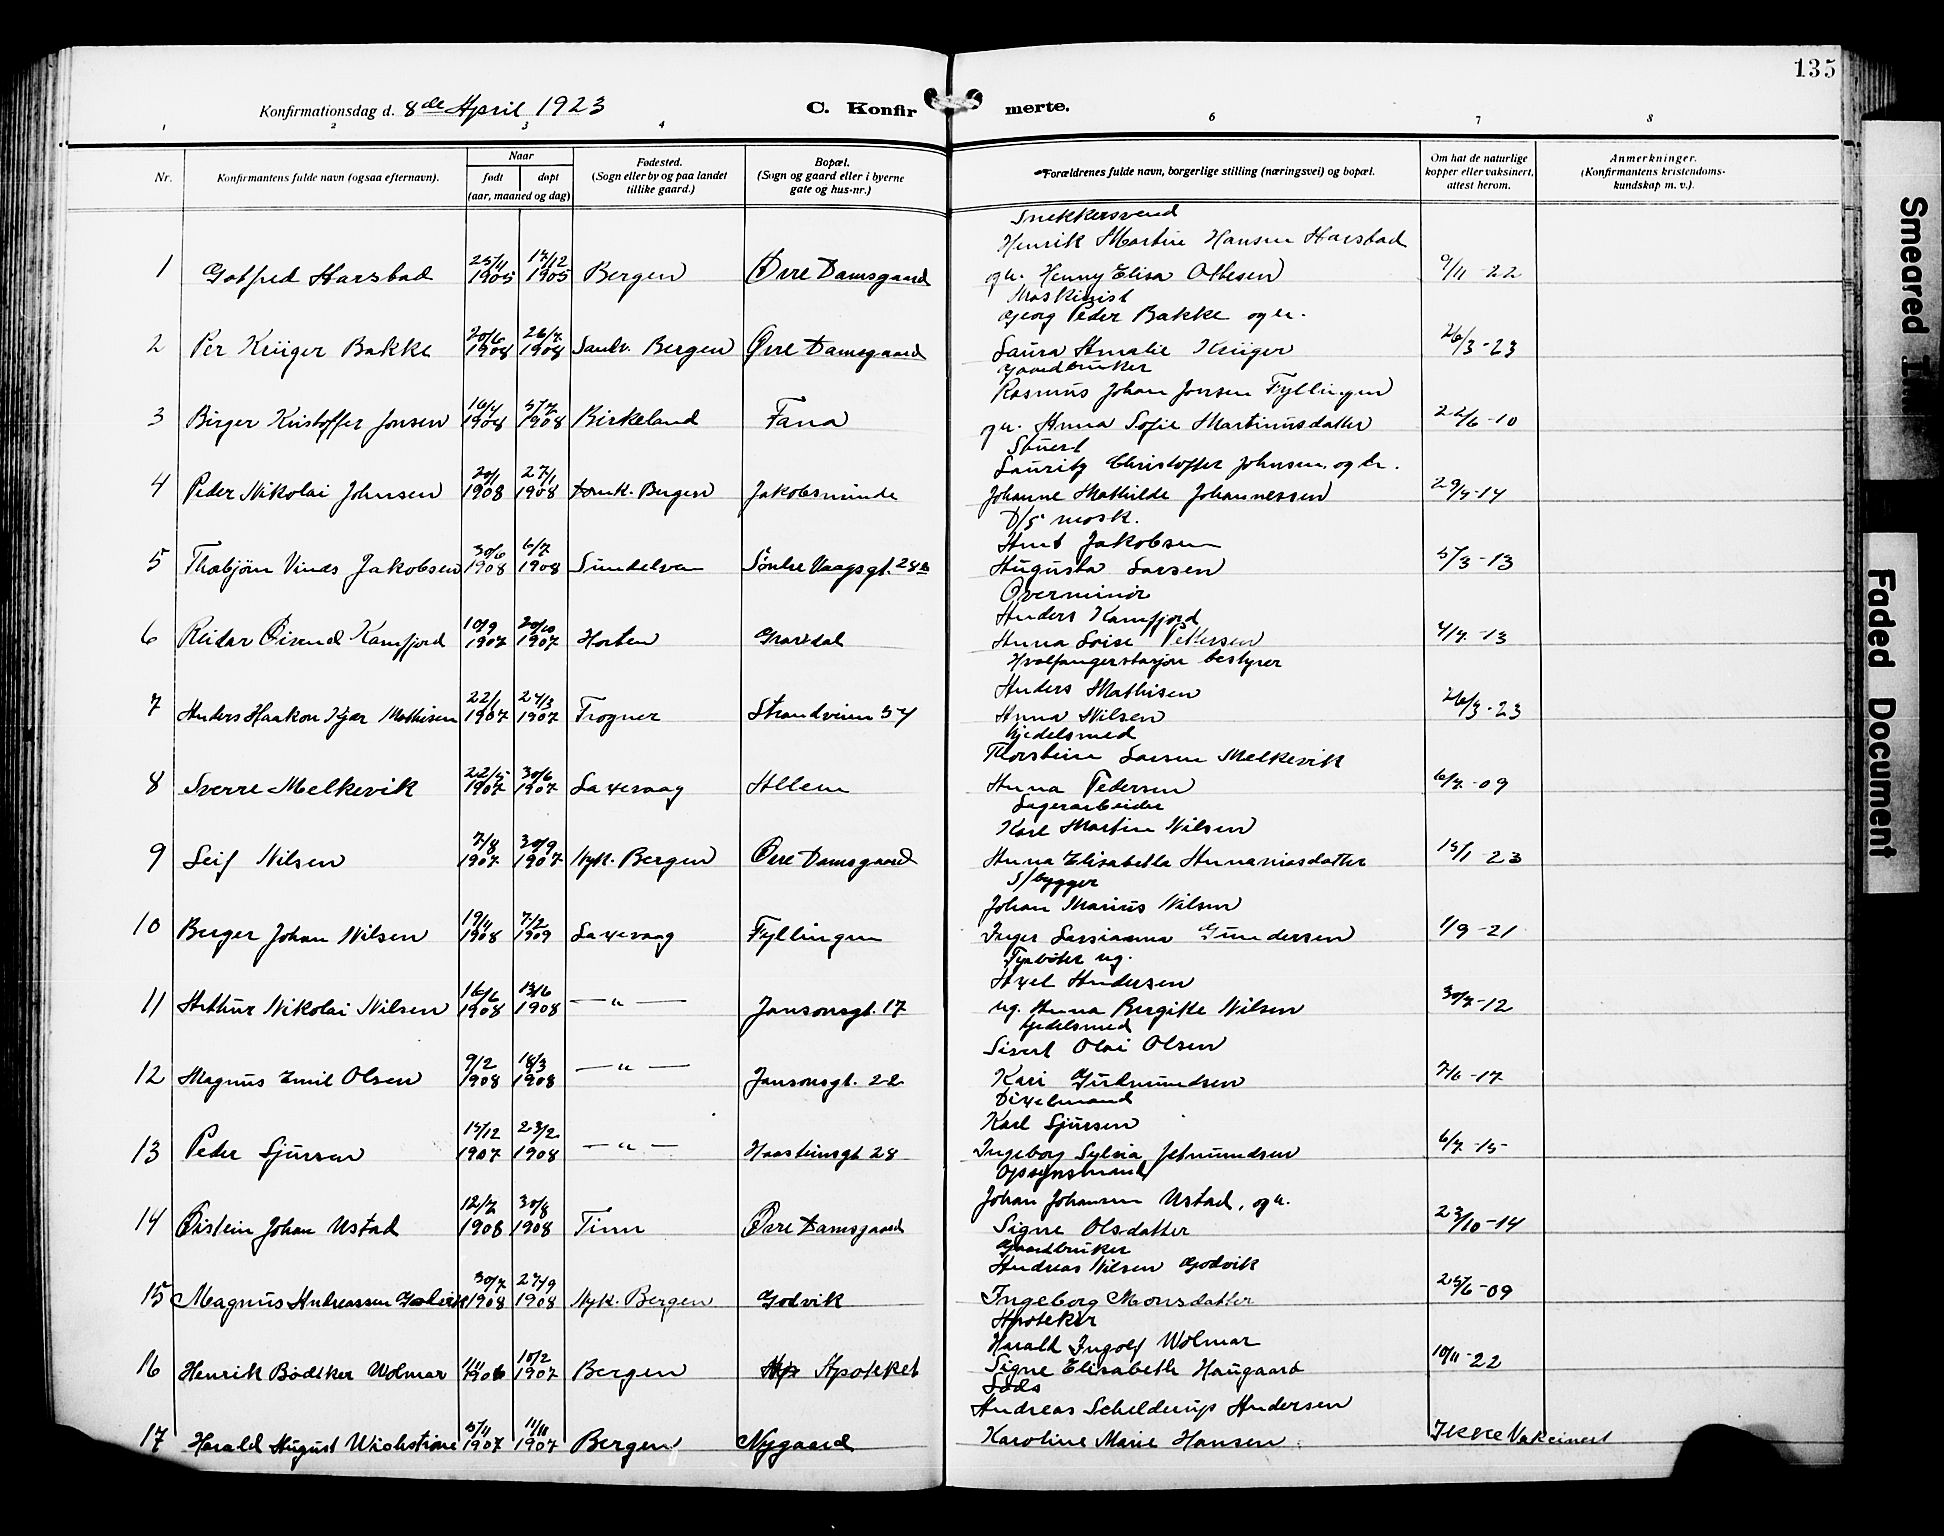 135
Konfirmationsdag d. 8de April 1923
C. Konfir merte.
1 2 3 4 6 7 8
Nr.
Konfirmantens fulde navn (ogsaa efternavn).
Naar
født døpt
(aar, maaned og dag)
Fødested.
(Sogn eller by og paa landet
tillike gaard.)
Bopæl.
(Sogn og gaard eller i byerne
gate og hus-nr.)
Forældrenes fulde navn, borgerlige stilling (næringsvei) og bopæl.
Om hat de naturlige
kopper eller vaksinert,
attest herom.
Anmerkninger.
(Konfirmantens kristendoms-
kundskap m. v.).
Snekkersvend
Henrik Martin Hansen Harstad
1 Gotfred Harstad 25/11 1905 17/12 1905 Bergen Øvre Damsgaard og h. Henny Elisa Ottesen 9/11-22
Maskinist
Georg Peder Bakke og h.
2 Per Krüger Bakke 20/6 1908 26/7 1908 Sandv. Bergen Øvre Damsgaard Laura Amalie Krüger 26/3-23
Gaardbruker
Rasmus Johan Jonsen Fyllingen
3 Birger Kristoffer Jonsen 16/4 1908 5/7 1908 Birkeland Fana og h. Anna Sofie Martinusdatter 22/6-10
Stuert
Lauritz Christoffer Johnsen og h.
4 Peder Nikolai Johnsen 20/1 1908 27/1 1908 Domk. Bergen Jakobsminde Johanne Mathilde Johannessen 29/7-14
D/S mask.
Amt Jakobsen
5 Thobjørn Vinds Jakobsen 30/6 1908 6/7 1908 Sundelven Søndre Vaagsgt. 28a Augusta Larsen 5/3-13
Overminør
Anders Kamfjord
6 Reidar Øivind Kamfjord 10/9 1907 20/10 1907 Horten Gravdal Anna Loise Pettersen 4/7-13
Hvalfangerstasjon bestyrer
Anders Mathisen
7 Anders Haakon Kjær Mathisen 22/1 1907 24/3 1907 Frogner Strandveien 54 Anna Nilsen 26/3-23
Kjedelsmed
Thorstein Larsen Melkevik
8 Sverre Melkevik 22/5 1907 30/6 1907 Laxevaag Hllem Anna Pedersen 6/7-09
Lagerarbeider
Karl Martin Nilsen
9 Leif Nilsen 7/8 1907 30/9 1907 Nyk. Bergen Øvre Damsgaard Anna Elisabeth Annaniasdatter 15/1-23
S/bygger
Johan Marius Nilsen
10 Berger Johan Nilsen 19/11 1908 7/2 1909 Laxevaag Fyllingen Inger Larsianna Gundersen 1/9-21
Fyrbøter ug.
Axel Andersen
11 Arthur Nikolai Nilsen 16/6 1908 13/6 1908 — " — Jansonsgt. 17 ug. Anna Bergitte Nilsen 30/7-12
Kjedelsmed
Sivert Olai Olsen
12 Magnus Emil Olsen 9/2 1908 18/3 1908 — " — Jansonsgt. 22 Kari Gudmundsen 7/6-17
Dixelmand
Karl Sjursen
13 Peder Sjursen 15/12 1907 23/2 1908 — " — Haasteinsgt 28 Ingeborg Sylvia Jetmundsen 6/7-15
Opsynsmand
Johan Johansen Ustad, og h.
14 Øistein Johan Ustad 12/7 1908 30/8 1908 Tinn Øvre Damsgaard Signe Olsdatter 23/10-14
Gaardbruker
Andreas Nilsen Godvik
15 Magnus Andreassen Godvik 30/7 1908 27/9 1908 Nyk. Bergen Godvik Ingeborg Monsdatter 25/6-09
Apoteker
Harald Ingolf Wolmar
16 Henrik Bødtker Wolmar 1/11 1906 10/2 1907 Bergen Apoteket Signe Elisabeth Haugaard 10/11-22
Søds
Andreas Schelderup Andersen
17 Harald August Wickstrøm 5/11 1907 11/11 1907 Bergen Nygaard Karoline Marie Hansen Ikke Vakcinert
Smeared
Faded Document